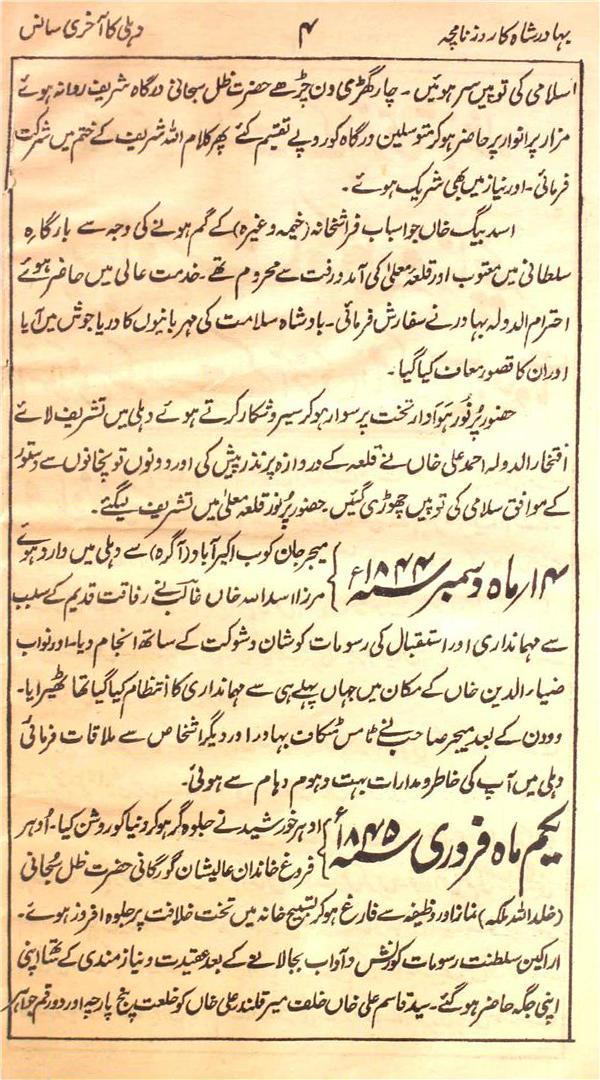 بہادر شاہ کا روزنامچہ ۴ دہلی کا آخری سانس
سلامی کی توپیں سر ہوئیں۔ چار گھڑی دن چڑھے حضرت ظل سبحانی درگاہ شریف روانہ ہوئے
مزار پر انوار پر حاضر ہوکر متوسلین درگاہ کو روپے تقیم کئے پھر کلام اللہ شریف کے ختم میں شرکت
فرمائی۔ اور نیاز میں بھی شریک ہوئے۔
اسد بیگ خاں جو اسباب فراشخانہ (خیمہ وغیرہ) کے گم ہونے کی وجہ سے بارگاہِ
سلطانی میں معتوب اور قلعہ معلیٰ کی آمد ورفت سے محروم تھے۔ خدمت عالی میں حاضر ہوئے
احترام الدولہ بہادر نے سفارش فرمائی۔ بادشاہ سلامت کی مہربانیوں کا دریا جوش میں آیا
اور ان کا قصور معاف کیا گیا۔
حضور پُر نُور ہَوَادار تخت پر سوار ہوکر سیر و شکار کرتے ہوئے دہلی میں تشریف لائے
افتخار الدولہ احمد علی خاں نے قلعہ کے دروازہ پر نذر پیش کی اور دونوں توپخانوں سے دستور
کے موافق سلامی کی توپیں چھوڑی گئیں۔ حضور پُر نور قلعہ معلیٰ میں تشریف لیگئے۔
۱۴ ماہ دسمبر ۱۸۴۴ء
میجر جان کوب اکبر آباد (آگرہ) سے دہلی میں وارد ہوئے
مرزا اسد اللہ خاں غالب نے رفاقت قدیم کے سبب
سے مہمانداری اور استقبال کی رسومات کو شان و شوکت کے ساتھ انجام دیا۔ اور نواب
ضیاء الدین خاں کے مکان میں جہاں پہلے ہی سے مہمانداری کا انتظام کیا گیا تھا ٹھیرایا۔
دو دن کے بعد میجر صاحب نے ٹامس مٹکاف بہادر اور دیگر اشخاص سے ملاقات فرمائی
دہلی میں آپ کی خاطر و مدارات بہت دہوم دہام سے ہوئی۔
یکم ماہ فروری ۱۸۴۵ء
ادہر خورشید نے جلوہ گر ہوکر دنیا کو روشن کیا۔ اُدہر
فروغ خاندان عالیشان گورگانی حضرت ظل سُبحانی
(خلد اللہ ملکہ) نماز اور وظیفہ سے فارغ ہوکر تسبیح خانہ میں تخت خلافت پر جلوہ افروز ہوئے۔
اراکین سلطنت رسومات کورنش و آداب بجا لانے کے بعد عقیدت و نیازمندی کے ساتھ اپنی
اپنی جگہ حاضر ہو گئے۔ سید قاسم علی خاں خلف میر قلندر علی خاں کو خلعت پنج پارچہ اور دو رقم جواہر